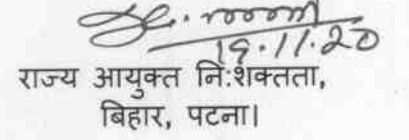 19.11.20
राज्य आयुक्त नि:शक्तता,
बिहार, पटना।